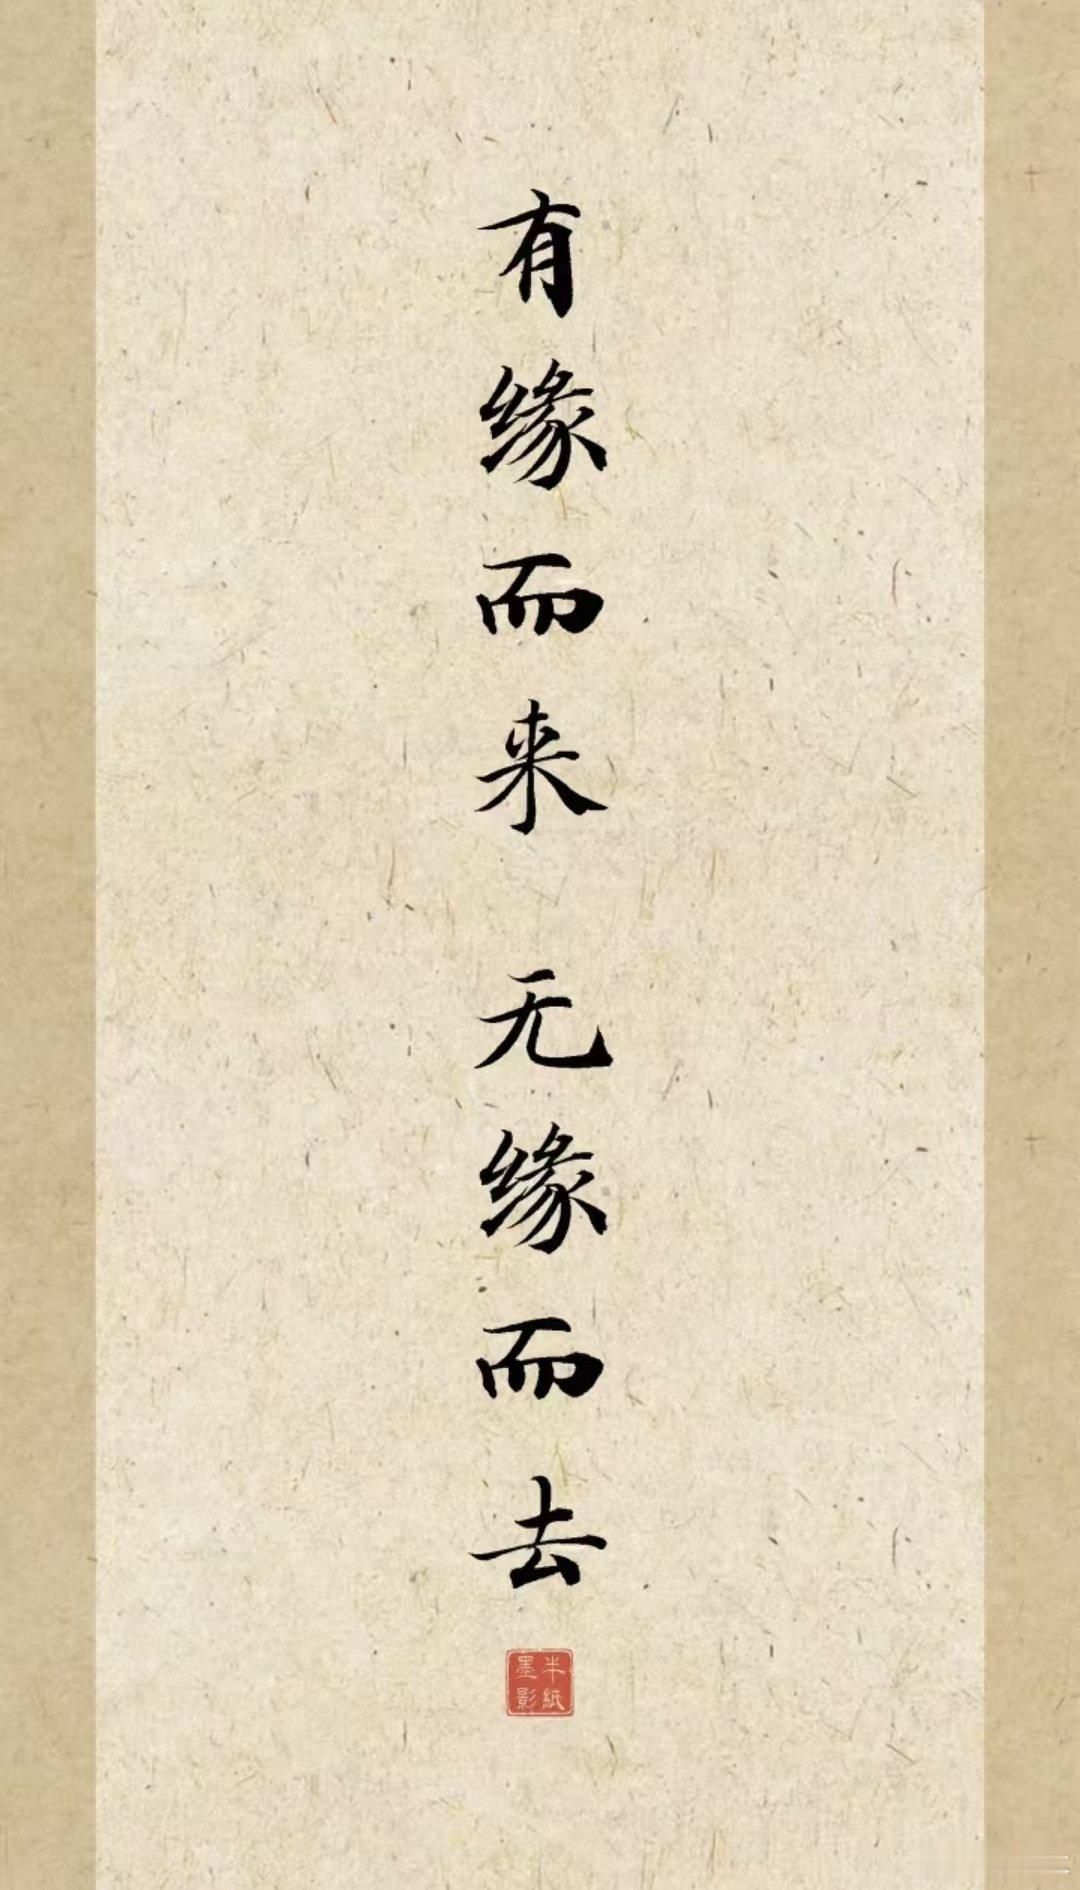 有缘而来 无缘而去
半纸
墨影